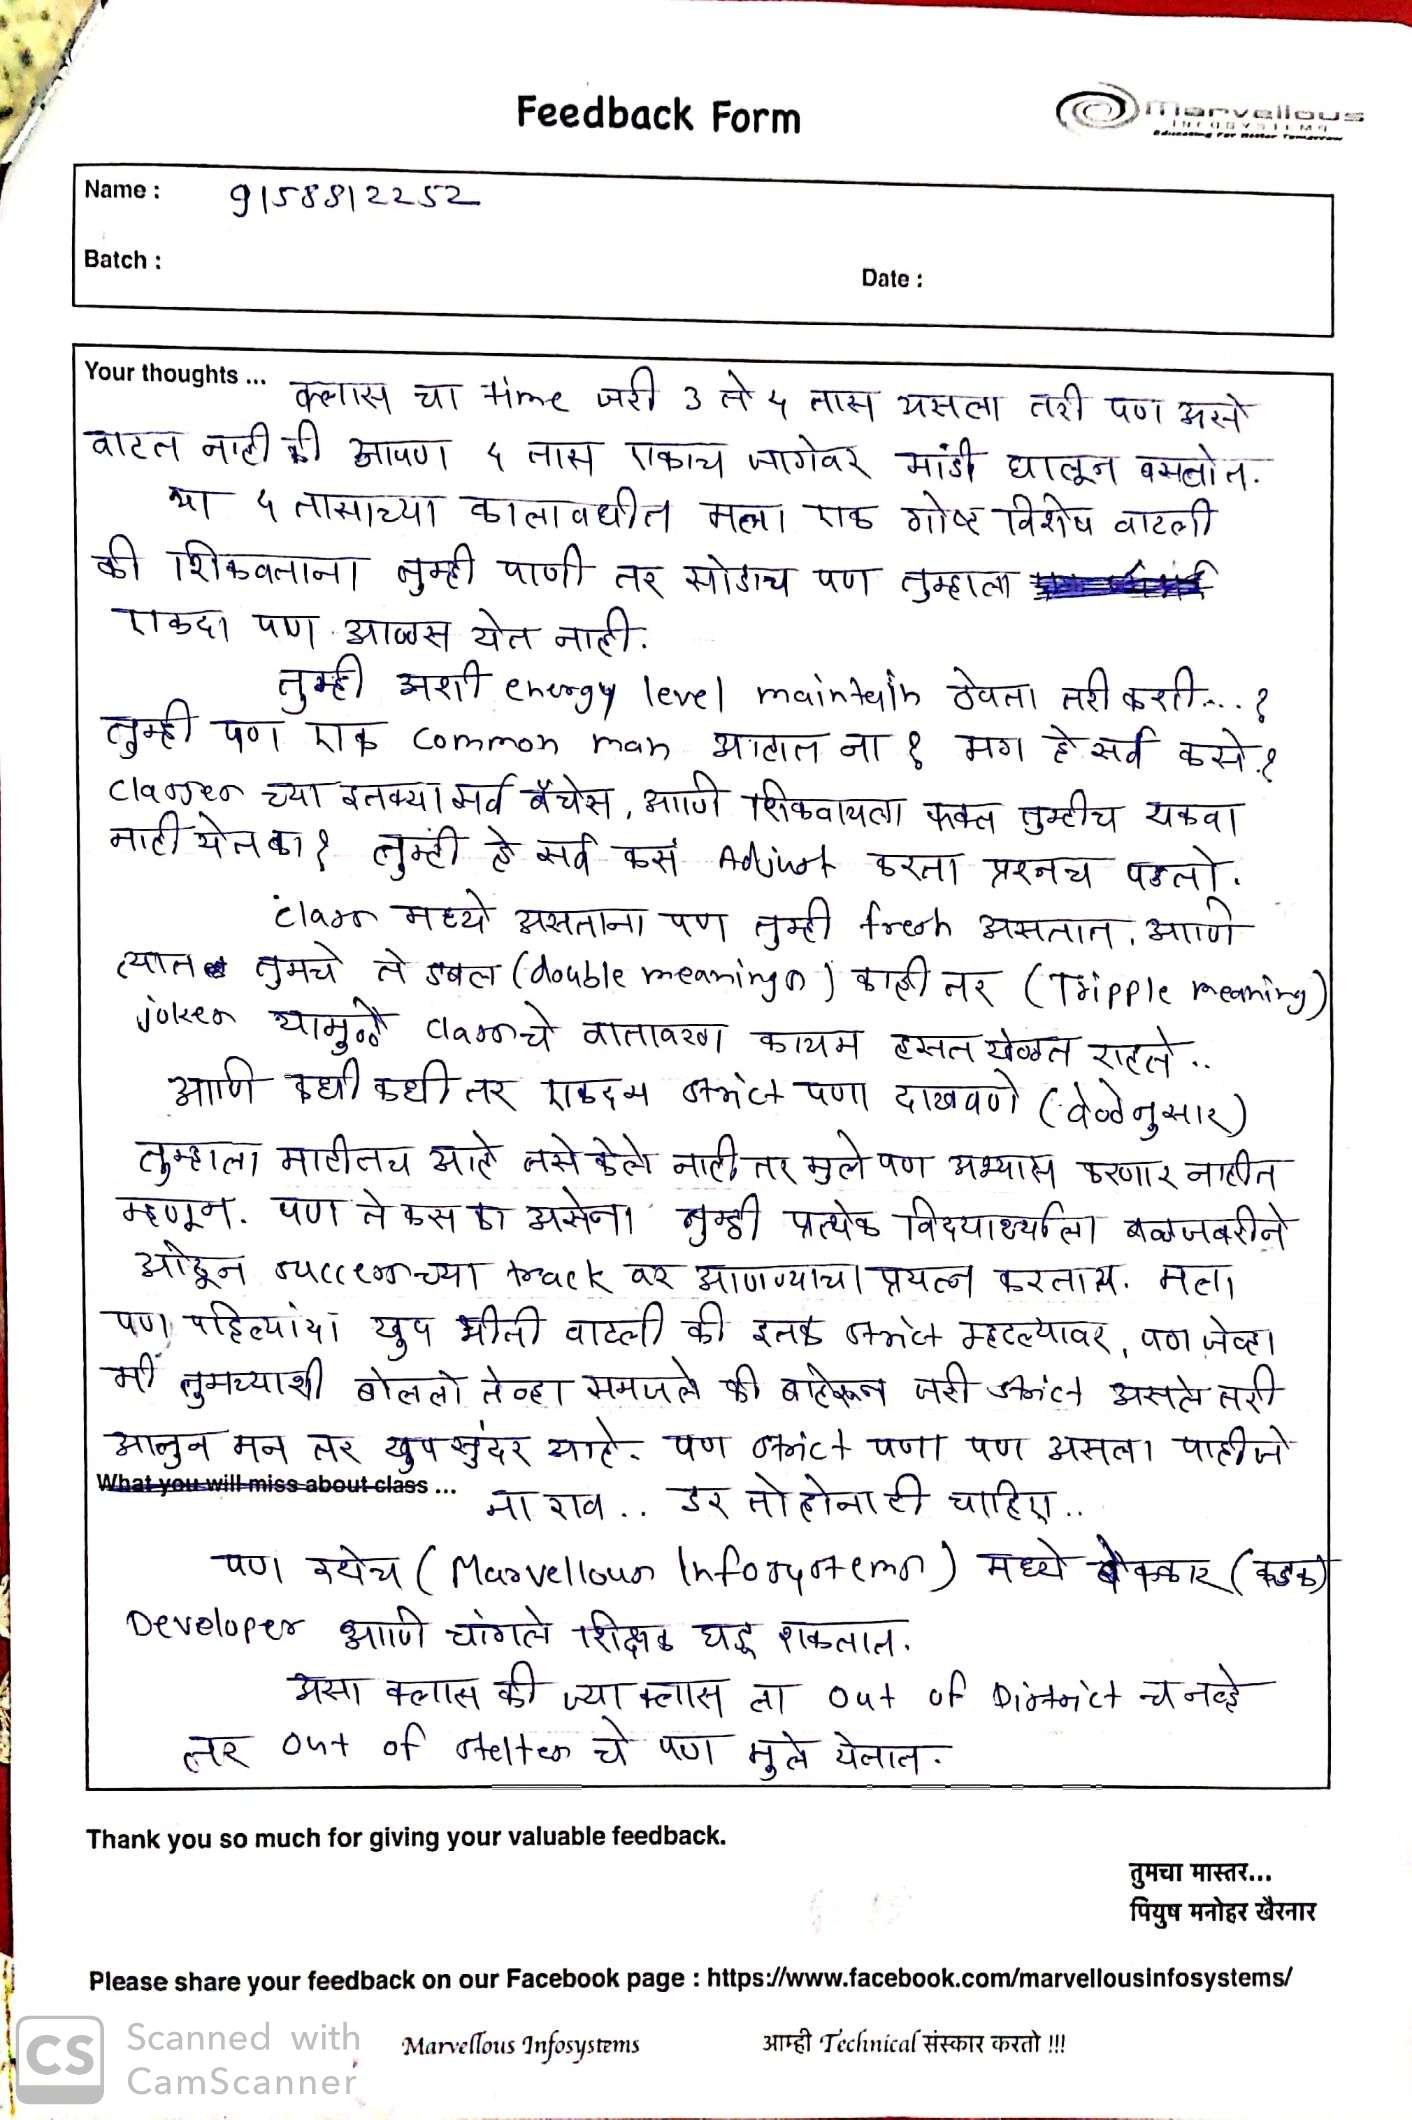 Feedback Form
Marvellous
INFOSYSTEMS
Educating For Better Tomorrow
Name : 9158812252
Batch :
Date :
Your thoughts ... क्लास चा time जरी 3 ते 4 तास असला तरी पण असे
वाटत नाही की आपण 4 तास एकाच जागेवर मांडी घालून बसलोत.
या 4 तासाच्या कालावधीत मला एक गोष्ट विशेष वाटली
की शिकवताना तुम्ही पाणी तर सोडाच पण तुम्हाला
एकदा पण आळस येत नाही.
तुम्ही अशी energy level maintain ठेवता तरी कशी....?
तुम्ही पण एक common man आहात ना ? मग हे सर्व कसे.?
classes च्या इतक्या सर्व बॅचेस, आणि शिकवायला फक्त तुम्हीच थकवा
नाही येत का? तुम्ही हे सर्व कसं Adjust करता प्रश्नच पडतो.
class मध्ये असताना पण तुम्ही fresh असतात, आणि
त्यात तुमचे ते डबल (double meanings) काही तर (Tripple meaning)
jokes यामुळे classचे वातावरण कायम हसत खेळत राहते..
आणि कधी कधी तर एकदम strict पणा दाखवणे (वेळेनुसार)
तुम्हाला माहीतच आहे तसे केले नाही तर मुले पण अभ्यास करणार नाहीत
म्हणून. पण ते कस का असेना तुम्ही प्रत्येक विदयार्थ्याला बळजबरीने
ओढून successच्या track वर आणण्याचा प्रयत्न करताय. मला
पण पहिल्यांदा खुप भीती वाटली की इतक strict म्हटल्यावर, पण जेव्हा
मी तुमच्याशी बोललो तेव्हा समजले की बाहेरून जरी strict असले तरी
आतुन मन तर खुप सुंदर आहे. पण strict पणा पण असला पाहीजे
What you will miss about class ... ना राव.. डर तो होना ही चाहिए..
पण इथेच (Marvellous Infosystems) मध्ये कडकार (कडक)
Developer आणि चांगले शिक्षक घडू शकतात.
असा क्लास की ज्या क्लास ला out of District च नव्हे
तर out of stetes चे पण मुले येतात.
Thank you so much for giving your valuable feedback.
तुमचा मास्तर...
पियुष मनोहर खैरनार
Please share your feedback on our Facebook page : https://www.facebook.com/marvellousinfosystems/
Marvellous Infosystems आम्ही Technical संस्कार करतो !!!
CS Scanned with
CamScanner